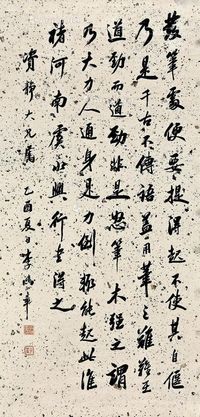 發筆處便要提得起不使其自偃
乃是千古不傳語蓋用筆之難難在
遒勁而遒勁非是怒筆木強之謂
乃大力人通身是力倒輒能起此惟
褚河南虞永興行書得之
資穉大兄屬 乙酉夏日李鴻章